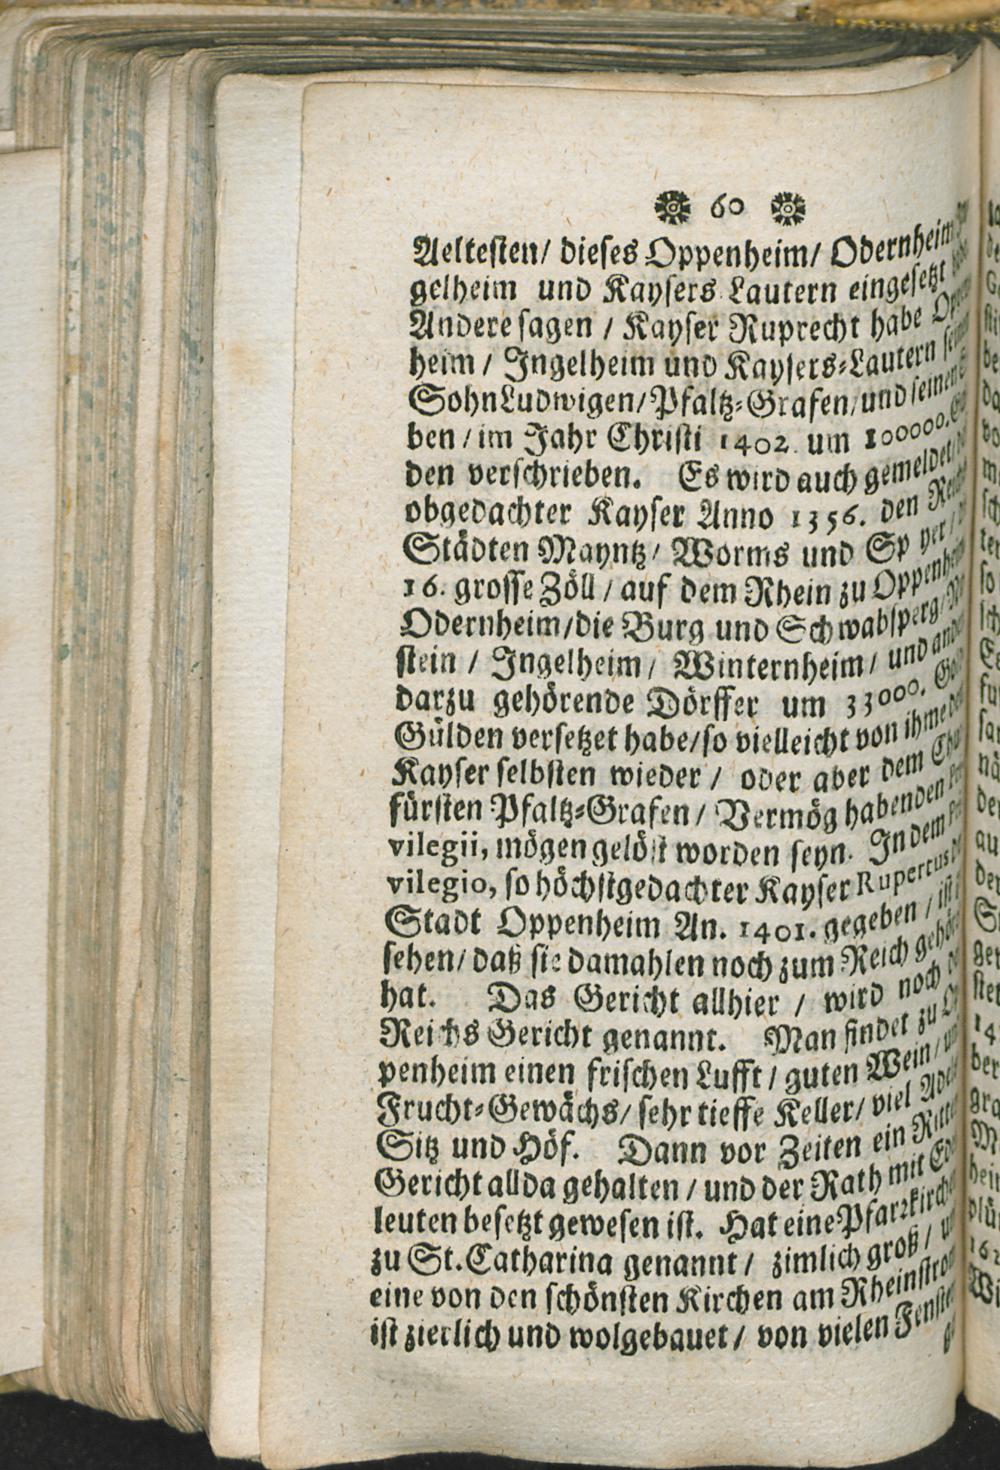 60
Aeltesten/ dieses Oppenheim/ Odernheim
gelheim und Kaysers Lautern eingesetzt
Andere sagen / Kayser Ruprecht habe
heim / Ingelheim und Kaysers-Lautern
Sohn Ludwigen/ Pfaltz-Grafen/ und seinen
ben / im Jahr Christi 1402. um 100000.
den verschrieben. Es wird auch gemeldet/
obgedachter Kayser Anno 1356. den
Städten Mayntz/ Worms und Speyer/
16. grosse Zöll / auf dem Rhein zu
Odernheim/ die Burg und Schwabsperg/
stein / Ingelheim/ Winternheim/ und
darzu gehörende Dörffer um 33000.
Gülden versetzet habe/ so vielleicht von ihme
Kayser selbsten wieder / oder aber dem
fürsten Pfaltz-Grafen/ Vermög habenden
vilegii, mögen gelößt worden seyn. In dem
vilegio, so höchstgedachter Kayser Rupertus
Stadt Oppenheim An. 1401. gegeben / ist
sehen/ daß sie damahlen noch zum Reich
hat. Das Gericht allhier / wird noch
Reichs Gericht genannt. Man findet zu
penheim einen frischen Lufft / guten Wein/
Frucht-Gewächs/ sehr tieffe Keller/ viel
Sitz und Höf. Dann vor Zeiten ein
Gericht allda gehalten / und der Rath mit
leuten besetzt gewesen ist. Hat eine Pfarrkirch
zu St. Catharina genannt / zimlich groß /
eine von den schönsten Kirchen am Rheinstrom
ist zierlich und wolgebauet / von vielen